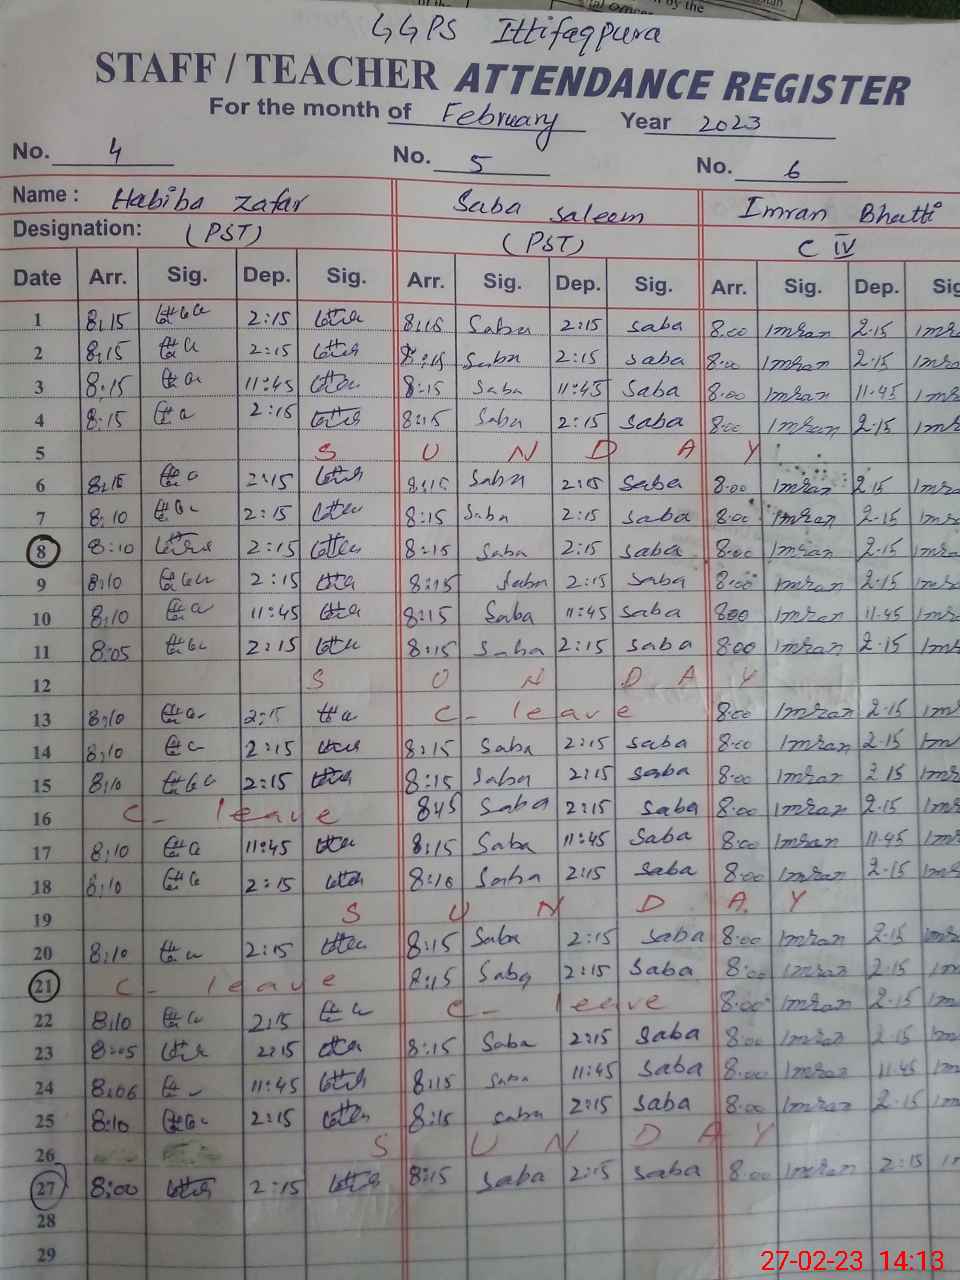 GGPS Ittifaqpura
STAFF / TEACHER ATTENDANCE REGISTER
For the month of February Year 2023
No. 4 No. 5 No. 6
Name : Habiba Zafar Saba Saleem Imran Bhatti
Designation: (PST) (PST) C IV
Date Arr. Sig. Dep. Sig. Arr. Sig. Dep. Sig. Arr. Sig. Dep. Sig
1 8:15 2:15 8:15 Saba 2:15 saba 8.00 Imran 2.15
2 8:15 2:15 8:15 Saba 2:15 saba 8.00 Imran 2.15
3 8:15 11:45 8:15 Saba 11:45 Saba 8.00 Imran 11.45
4 8:15 2:15 8:15 Saba 2:15 saba 8.00 Imran 2.15
5 S U N D A Y
6 8:15 2:15 8:15 Saba 2:15 Saba 8.00 Imran 2.15
7 8:10 2:15 8:15 Saba 2:15 saba 8.00 Imran 2.15
8 8:10 2:15 8:15 Saba 2:15 saba 8.00 Imran 2.15
9 8:10 2:15 8:15 Saba 2:15 Saba 8.00 Imran 2.15
10 8:10 11:45 8:15 Saba 11:45 saba 8.00 Imran 11.45
11 8:05 2:15 8:15 Saba 2:15 saba 8.00 Imran 2.15
12 S U N D A Y
13 8:10 2:15 C- leave 8.00 Imran 2.15
14 8:10 2:15 8:15 Saba 2:15 saba 8.00 Imran 2.15
15 8:10 2:15 8:15 Saba 2:15 saba 8.00 Imran 2.15
16 C- leave Saba 2:15 saba 8.00 Imran 2.15
17 8:10 11:45 8:15 Saba 11:45 Saba 8.00 Imran 11.45
18 8:10 2:15 Saba 2:15 saba 8.00 Imran 2.15
19 S U N D A Y
20 8:10 2:15 8:15 Saba 2:15 saba 8.00 Imran 2.15
21 C- leave 8:15 Saba 2:15 Saba 8.00 Imran 2.15
22 8:10 2:15 C- leave 8.00 Imran 2.15
23 8:05 2:15 8:15 Saba 2:15 Saba 8.00 Imran 2.15
24 8:06 11:45 8:15 Saba 11:45 Saba 8.00 Imran 11.45
25 8:10 2:15 8:15 saba 2:15 saba 8.00 Imran 2.15
26 S U N D A Y
27 8:00 2:15 8:15 saba 2:15 saba 8.00 Imran 2:15
28
29
27-02-23 14:13